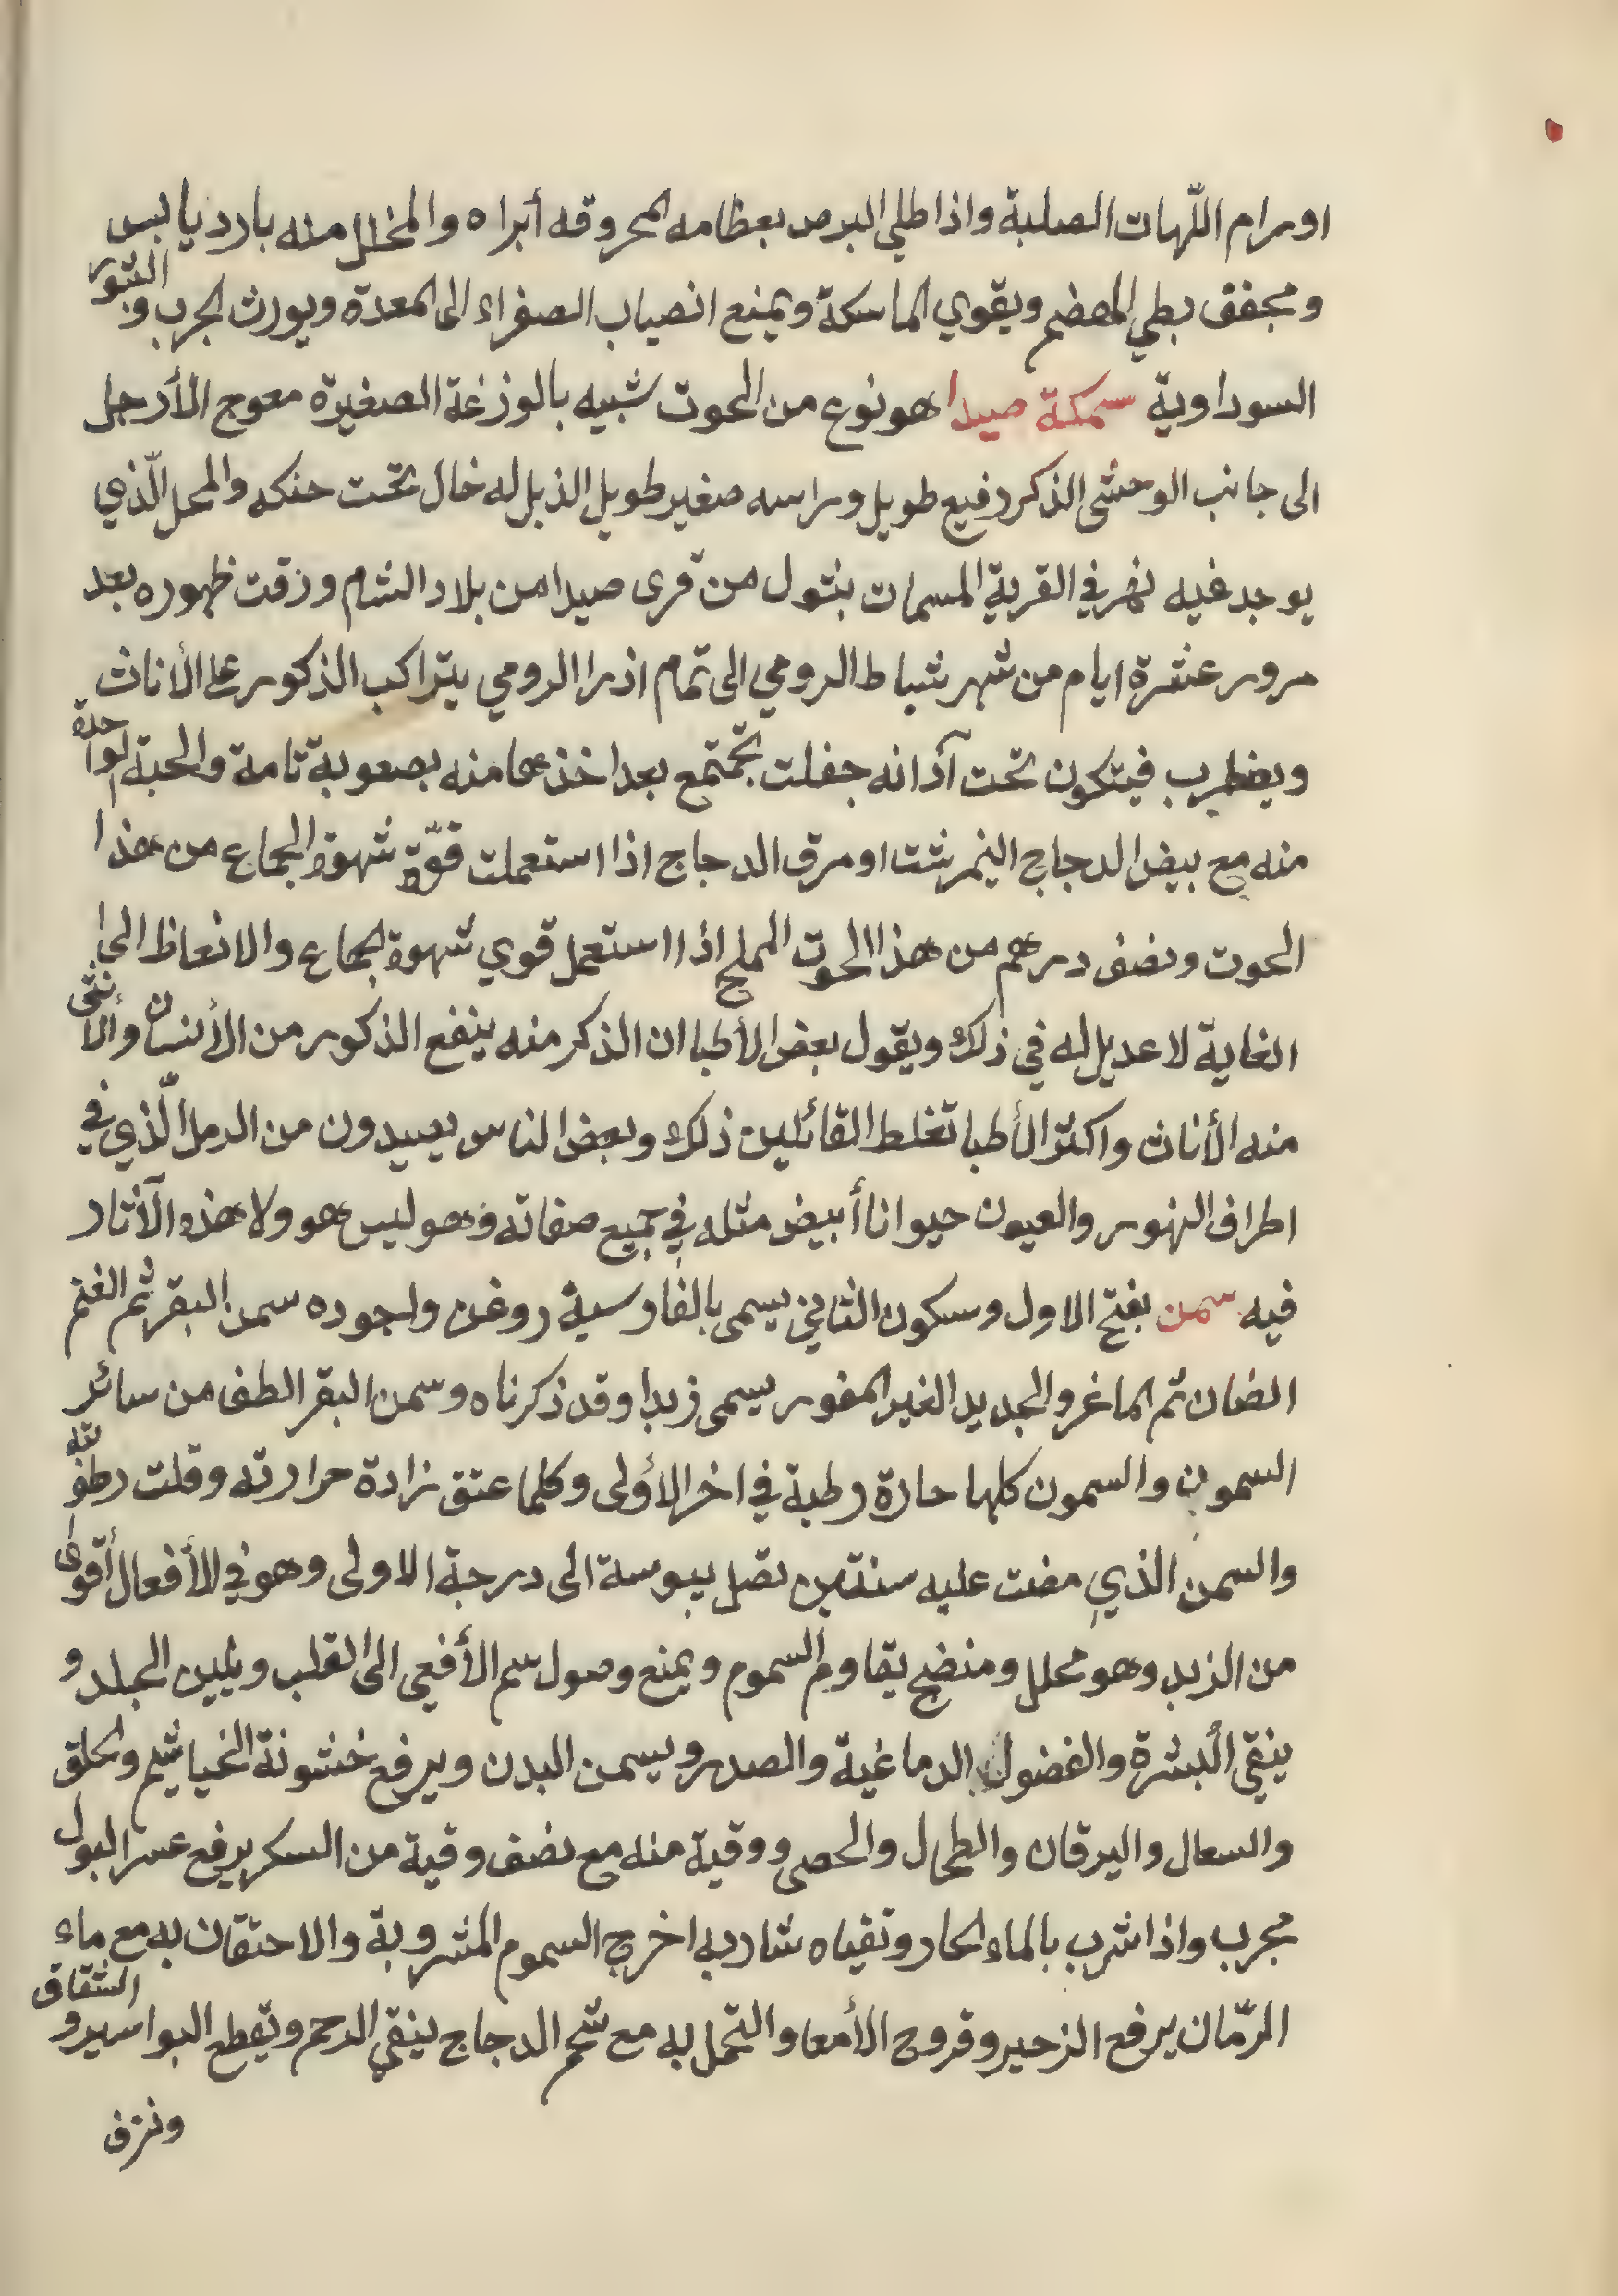 اورام اللّهات الصلبة واذا طلي البرص بعظامه المحروقه أبراه والمخلل منه بارد يابس
ومجفف بطي الهضم ويقوي الماسكة ويمنع انصباب الصفراء الى المعدة ويورث الجرب و البثور
السوداوية سمكة صيدا هو نوع من الحوت شبيه بالوزغة الصغيرة معوج الأرجل
الى جانب الوحشى الذكر رفيع طويل وراسه صغير طويل الذيل له خال تحت حنكه والمحل الّذي
يوجد فيه نهر في القرية المسمات بنتول من قرى صيدا من بلاد الشام ووقت ظهوره بعد
مرور عشرة ايام من شهر شباط الرومي الى تمام اذرا الرومي يتراكب الذكور على الأناث
ويضطرب فيتكون تحت آذانه جفلت تجتمع بعد اخذها منه بصعوبة تامة والحبة الواحدة
منه مع بيض الدجاج النيمرشت او مرق الدجاج اذا استعملت قوّة شهوة الجماع من هذا
الحوت ونصف درهم من هذا الحوت المملح اذا استعمل قوي شهوة الجماع والانعاظ الى
الغاية لا عديل له في ذلك ويقول بعض الأطبا ان الذكر منه ينفع الذكور من الأنسان والأنثى
منه الأناث واكثر الأطبا تغلط القائلين ذلك وبعض الناس يصيدون من الرمل الّذي في
اطراف النهور والعيون حيوانا أبيض مثله في جميع صفاته وهو ليس هو ولا هذه الآثار
فيه سمن بفتح الاول وسكون الثاني يسمى بالفارسية روغن واجوده سمن البقر ثم الغنم
الضان ثم الماغر والجديد الغير المفور يسمى زبدا وقد ذكرناه وسمن البقر الطف من سائر
السمون والسمون كلها حارة رطبة في اخر الأولى وكلما عتق زادة حرارته وقلت رطوبته
والسمن الذي مضت عليه سنتين تصل يبوسة الى درجة الاولى وهو في الأفعال أقوى
من الزبد وهو محلل ومنضج يقاوم السموم ويمنع وصول سم الأفعى الى القلب ويليين الجلد و
ينقي البشرة والفضول الدماغية والصدر ويسمن البدن ويرفع خشونة الخياشيم والحلق
والسعال واليرقان والطحال والحصى ووقية منه مع نصف وقية من السكر يرفع عسر البول
مجرب واذا شرب بالماء الحار وتقياه شاربه اخرج السموم المشروبة والاحتقان به مع ماء
الرمّان يرفع الزحير وقروح الأمعا والتحمل به مع شحم الدجاج ينقي الرحم ويقطع البواسير و الشقاق
ونزف